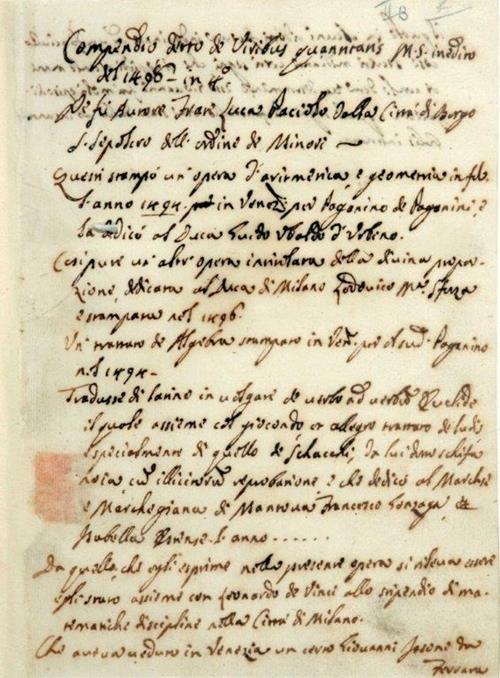 Compendio detto de Viribus quantitatis M.S. inedito
del 1496 in 4º
Ne fu Autore Frat' Luca Paciolo dalla Città di Borgo
S. Sepolcro dell'ordine de Minori
Questi stampò un'opera d'aritmetica, e geometria in fol.
l'anno 1494. in Venezia per Paganino de Paganini, e
la dedicò al Duca Guido Ubaldo d'Urbino.
Così pure un altr'opera intitolata della divina propor-
zione, dedicata al Duca di Milano Lodovico Mª Sforza
e stampata nel 1496.
Un trattato de Algebra stampato in Ven. per il sud. Paganino
nel 1494-
Tradusse di latino in volgare de verbo ad verbum Euclide
il quale assieme col giocondo et allegro trattato de ludis
especialmente di quello de Schacchi, da lui detto schifa
noia cum illicitorum reprobatione e che dedicò al Marchese
e Marchegiana di Mantova Francesco Gonzaga, et
Isabella Estense l'anno ......
Da quello, che egli esprime nella presente opera si rileva essere
egli stato assieme con Leonardo da Vinci allo stipendio di ma-
tematiche discipline nella Città di Milano.
Che aveva veduto in Venezia un certo Giovanni Jasone da
Ferrara